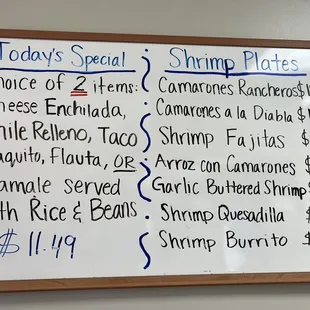 Today's Special
hoice of 2 items:
heese Enchilada,
hile Relleno, Taco
aquito, Flauta, OR
amale Served
th Rice & Beans
$11.49
Shrimp Plates
Camarones Rancheros $1
Camarones a la Diabla $1
Shrimp Fajitas $
Arroz con Camarones $
Garlic Buttered Shrimp $
Shrimp Quesadilla $
Shrimp Burrito $